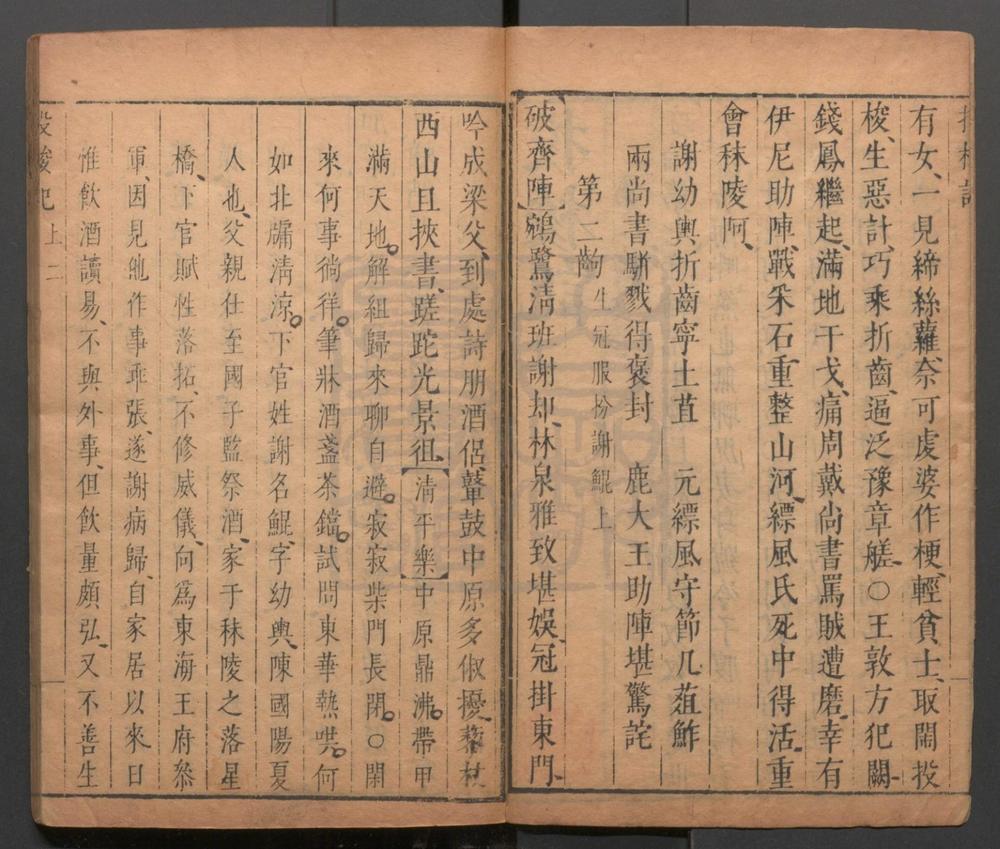 投梭記
有女、一見締絲蘿、奈可虔婆作梗、輕貧士、取鬧投
梭、生惡計、巧乘折齒、逼泛豫章艖、○王敦方犯闕、
錢鳳繼起、滿地干戈、痛周戴尚書罵賊遭磨、幸有
伊尼助陣、戰采石重整山河、縹風氏死中得活、重
會秣陵阿、
謝幼輿折齒寧土苴　元縹風守節几菹鮓
兩尚書駢戮得褒封　鹿大王助陣堪驚詫
第二齣　生冠服扮謝鯤上
【破齊陣】鵷鷺淸班謝却、林泉雅致堪娛、冠掛東門、
吟成梁父、到處詩朋酒侶、鼙鼓中原多俶擾、藜杖
西山且挾書、蹉跎光景徂、【淸平樂】中原鼎沸。帶甲
滿天地。解組歸來聊自避。寂寂柴門長閉。○閑
來何事徜徉。筆牀酒盞茶鐺。試問東華熱哄。何
如北牖淸涼。下官姓謝名鯤、字幼輿、陳國陽夏
人也、父親仕至國子監祭酒、家于秣陵之落星
橋、下官賦性落拓、不修威儀、向爲東海王府參
軍、因見他作事乖張、遂謝病歸、自家居以來、日
惟飲酒讀易、不與外事、但飲量頗弘、又不善生
投梭記　上　二